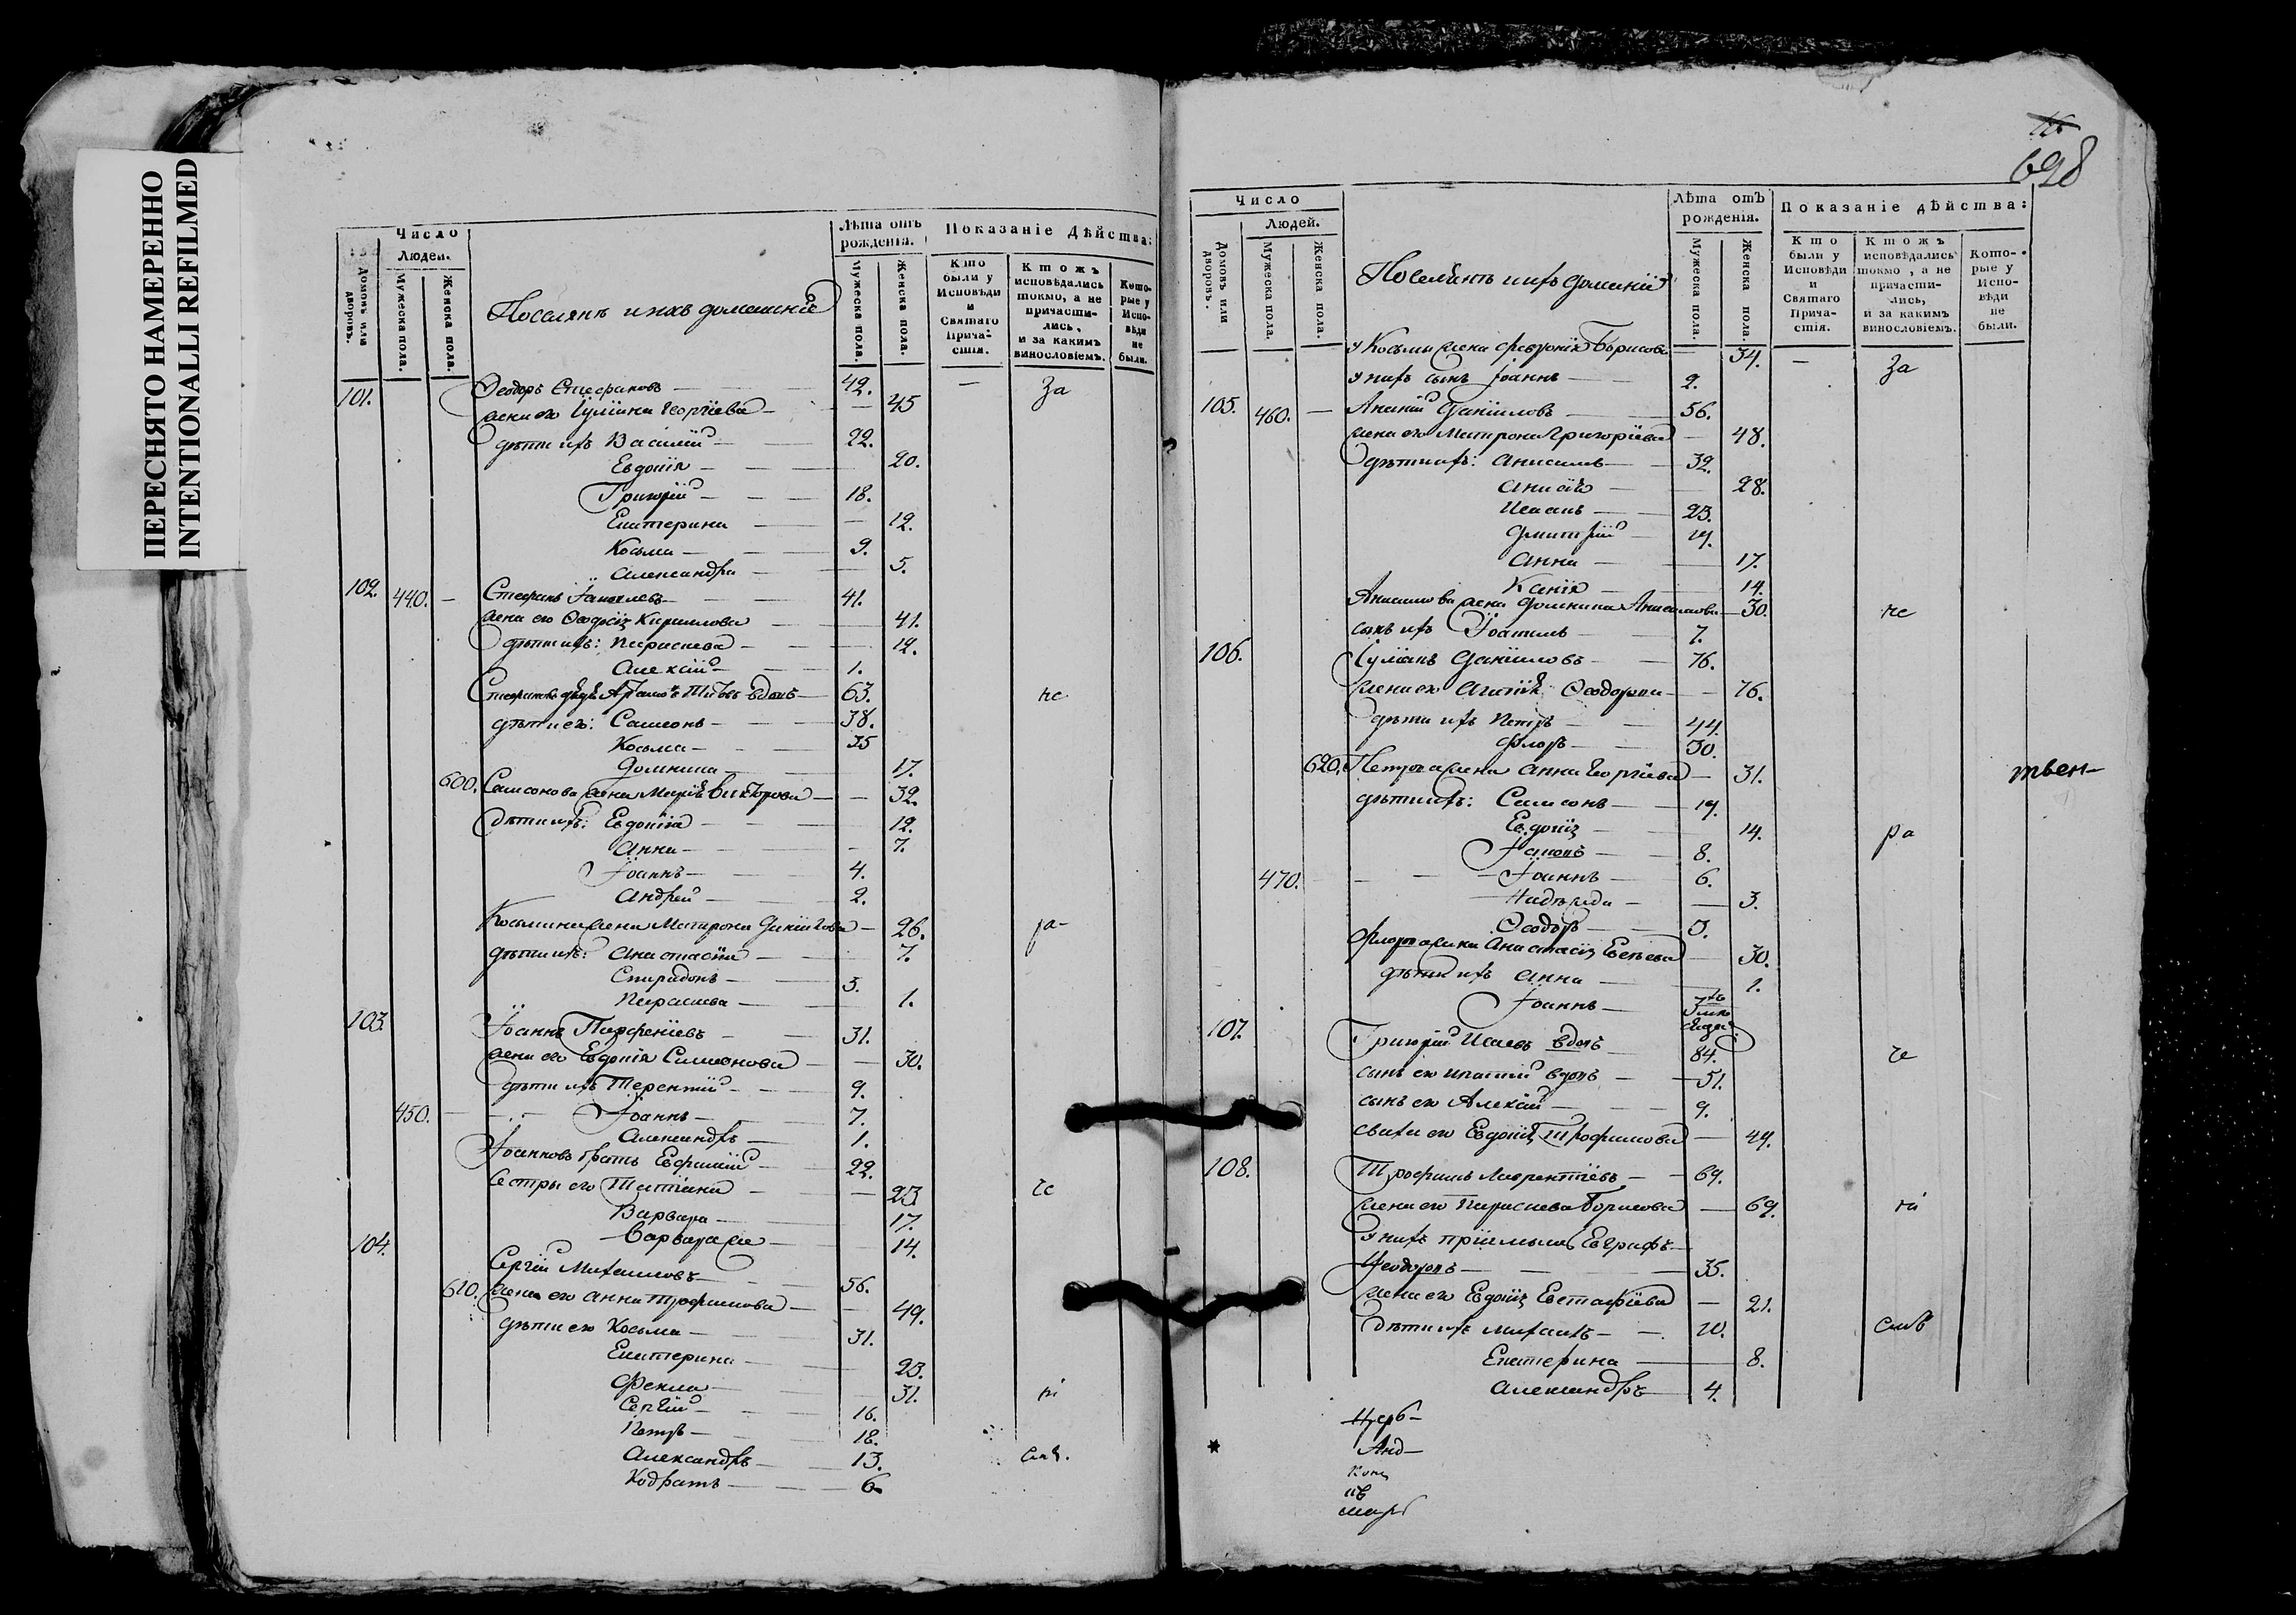 ПЕРЕСНЯТО НАМЕРЕННО
INTENTIONALLI REFILMED
Число
Людей.
Домовъ или дворовъ.
Мужеска пола.
Женска пола.
Поселянѣ и ихъ домашніе
Лѣта отъ рожденія.
Мужеска пола.
Женска пола.
Показаніе дѣйства:
Кто были у Исповѣди и Святаго Прича-стія.
Ктожъ исповѣдались токмо, а не причасти-лись, и за какимъ винословіемъ.
Кото-рые у Испо-вѣди не были.
101. Ѳеодоръ Стефановъ — 42. — За
жена его Іуліана Георгіева — 45
дѣти ихъ Василій — 22.
Евдокія — 20.
Григорій — 18.
Екатерина — 12.
Косьма — 9.
Александра — 5.
102. 440. — Стефанъ Іаковлевъ — 41.
жена его Ѳеодосія Кирилова — 41.
дѣти ихъ: Параскева — 12.
Алексій — 1.
Стефановъ дядя Титовъ вдовъ — 63. не
дѣти его: Самсонъ — 38.
Косьма — 35
Домникіа — 17.
600. Самсонова жена Марія Викторова — 32.
Дѣти ихъ: Евдокіа — 12.
Анна — 7.
Іоаннъ — 4.
Андрей — 2.
Косьмина жена Матрона Даніилова — 26. ра-
дѣти ихъ: Анастасіа — 7.
Спиридонъ — 3.
Параскева — 1.
103. Іоаннъ Парфеніевъ — 31.
жена его Евдокія Симеонова — 30.
дѣти ихъ Терентій — 9.
450. — Іоаннъ — 7.
Александръ — 1.
Іоанновъ братъ Евфимій — 22.
Сестры его Татіана — 23 че
Варвара — 17.
Варвара же — 14.
104. Сергій Михаиловъ — 56.
610. жена его Анна Трофимова — 49.
дѣти его Косьма — 31.
Екатерина — 23.
Фекла — 31.
Сергій — 16.
Петръ — 18.
Александръ — 13.
Кодратъ — 6
698
Число
Людей.
Домовъ или дворовъ.
Мужеска пола.
Женска пола.
Поселянѣ и ихъ домашніе
Лѣта отъ рожденія.
Мужеска пола.
Женска пола.
Показаніе дѣйства:
Кто были у Исповѣди и Святаго Прича-стія.
Ктожъ исповѣдались токмо, а не причасти-лись, и за какимъ винословіемъ.
Кото-рые у Испо-вѣди не были.
у Косьмы жена Февронія Борисова — 34. — За
у нихъ сынъ Іоаннъ — 2.
105. 460. — Ананій Даніиловъ — 56.
жена его Матрона Григоріева — 48.
дѣти ихъ: Анисимъ — 32.
Анисія — 28.
Исаакъ — 23.
Дмитрій — 19.
Анна — 17.
14.
Анисимова жена Домникіа — 30. не
сынъ ихъ Іоакимъ — 7.
106. Іуліанъ Даніиловъ — 76.
жена его Ѳеодорова — 76.
дѣти ихъ Петръ — 44.
Флоръ — 30.
620. Петрова жена Анна Георгіева — 31. твен-
дѣти ихъ: Самсонъ — 19.
Евдокія — 14. ра
Іаковъ — 8.
470. — Іоаннъ — 6.
Надежда — 3.
Ѳеодоръ — 3.
Флорова жена Анастасія — 30.
дѣти ихъ Анна — 1.
Іоаннъ —
107. Григорій Исаевъ вдовъ — 84. че
сынъ его Ипатій вдовъ — 51.
сынъ его Алексій — 9.
сватья его Евдокія Трофимова — 49.
108. Трофимъ Лаврентіевъ — 69.
жена его Параскева Борисова — 69.
у нихъ пріимышъ Евграфъ
Ѳеодоровъ — 35.
жена его Евдокія Евстафіева — 21.
Дѣти ихъ Михаилъ — 10.
Екатерина — 8.
Александръ — 4.
Церб-
* Анд-